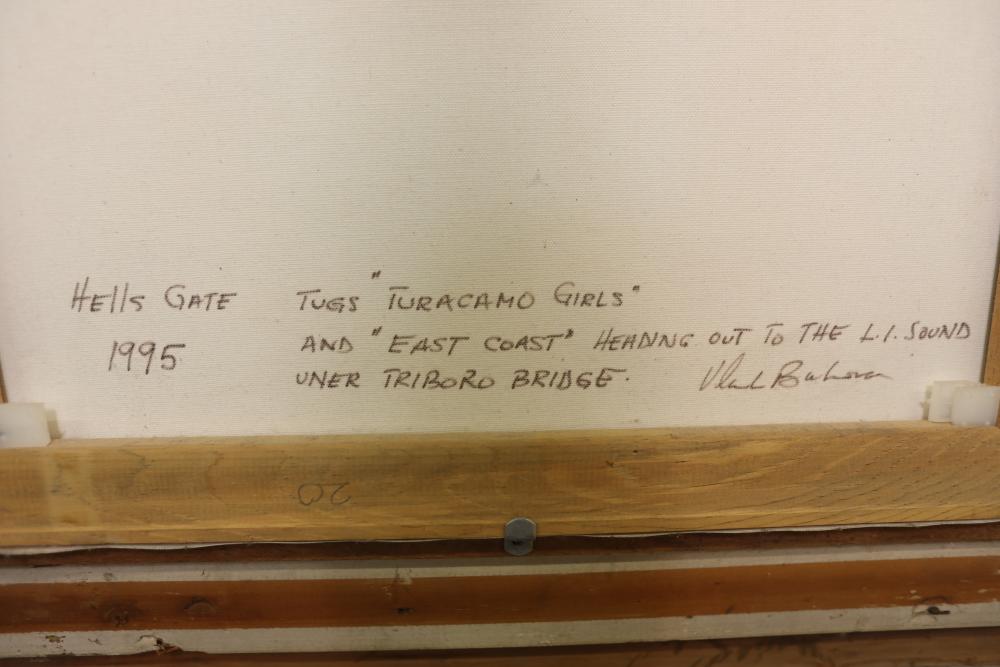 Hells Gate Tugs "Turacamo Girls"
1995 and "East Coast" heading out to the L.I. Sound
uner Triboro Bridge.
20